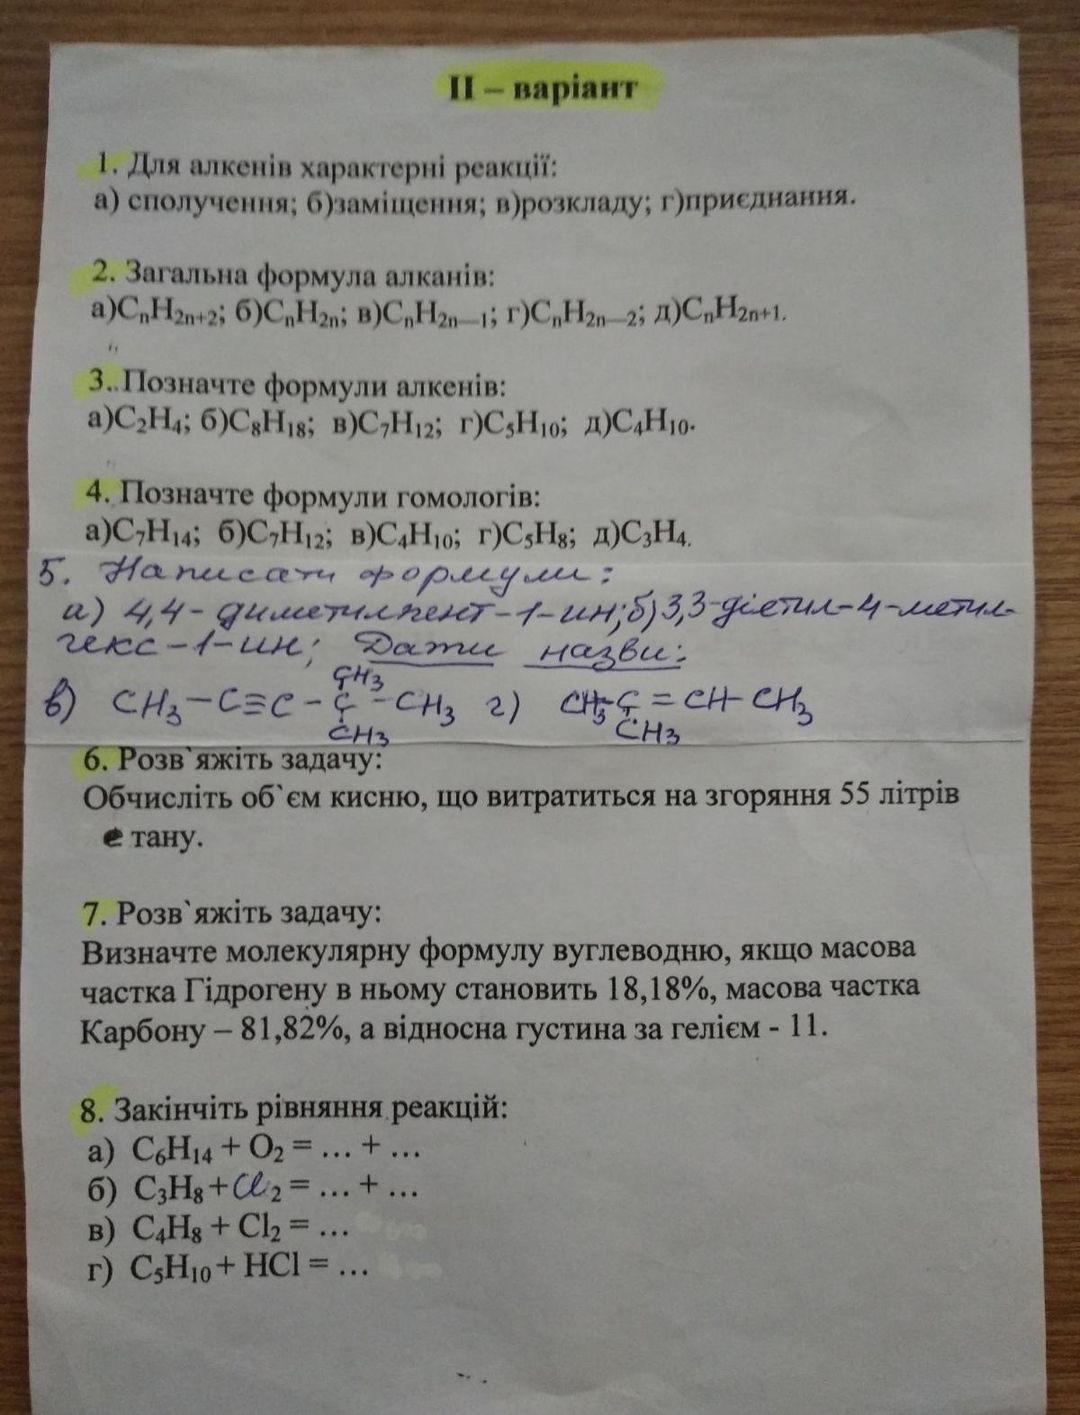 II – варіант
1. Для алкенів характерні реакції:
а) сполучення; б)заміщення; в)розкладу; г)приєднання.
2. Загальна формула алканів:
а)CnH2n+2; б)CnH2n; в)CnH2n—1; г)CnH2n—2; д)CnH2n+1.
3. Позначте формули алкенів:
а)C2H4; б)C8H18; в)C7H12; г)C5H10; д)C4H10.
4. Позначте формули гомологів:
а)C7H14; б)C7H12; в)C4H10; г)C5H8; д)C3H4.
5. Написати формули:
а) 4,4-диметилпент-1-ин; б) 3,3-діетил-4-метил-
гекс-1-ин; Дати назви:
CH3
в) CH3–C≡C–C–CH3 г) CH3-C=CH-CH3
CH3 CH3
6. Розв`яжіть задачу:
Обчисліть об`єм кисню, що витратиться на згоряння 55 літрів
е тану.
7. Розв`яжіть задачу:
Визначте молекулярну формулу вуглеводню, якщо масова
частка Гідрогену в ньому становить 18,18%, масова частка
Карбону – 81,82%, а відносна густина за гелієм - 11.
8. Закінчіть рівняння реакцій:
а) C6H14 + O2 = ... + ...
б) C3H8 + Cl2 = ... + ...
в) C4H8 + Cl2 = ...
г) C5H10 + HCl = ...